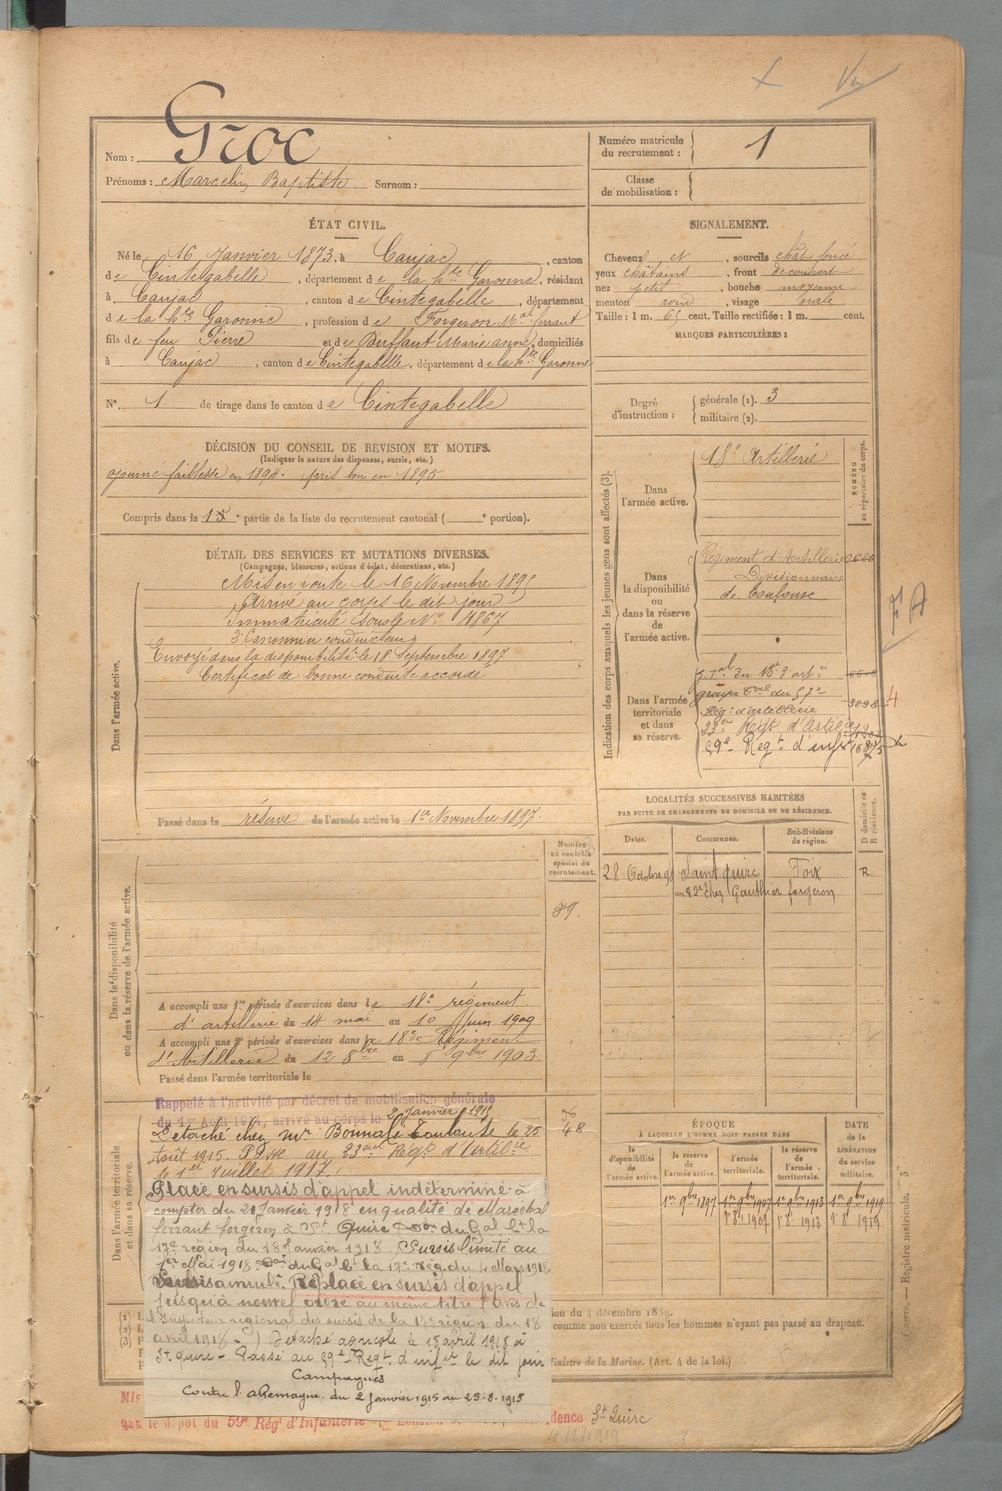 Groc
Nom :
Prénoms : Marcelin Baptiste Surnom :
Numéro matricule du recrutement : 1
Classe de mobilisation :
ÉTAT CIVIL.
Né le 16 Janvier 1873, à Caujac, canton
de Cintegabelle, département de la hte Garonne, résidant
à Caujac, canton de Cintegabelle, département
de la hte Garonne, profession de Forgeron Mal ferrant
fils de feu Pierre et de Buffaut Marie anne, domiciliés
à Caujac, canton de Cintegabelle, département de la hte Garonne
N° 1 de tirage dans le canton de Cintegabelle
SIGNALEMENT.
Cheveux et, sourcils chât foncé
yeux châtains, front découvert
nez petit, bouche moyenne
menton rond, visage ovale
Taille : 1 m. 65 cent. Taille rectifiée : 1 m. cent.
MARQUES PARTICULIÈRES :
Degré d'instruction : générale (1). 3
militaire (2).
DÉCISION DU CONSEIL DE REVISION ET MOTIFS.
(Indiquer la nature des dispenses, sursis, etc.)
ajourné faiblesse en 1894. pris bon en 1895
Compris dans la partie de la liste du recrutement cantonal ( portion).
DÉTAIL DES SERVICES ET MUTATIONS DIVERSES.
(Campagnes, blessures, actions d'éclat, décorations, etc.)
Dans l'armée active.
Mis en route le 16 Novembre 1895
Arrivé au corps le dit jour
Immatriculé sous le No 4867
2e Canonnier conducteur
Envoyé dans la disponibilité le 18 Septembre 1897
Certificat de bonne conduite accordé
Passé dans la réserve de l'armée active le 1er Novembre 1897.
Indication des corps auxquels les jeunes gens sont affectés (3).
NUMÉRO au répertoire du corps.
Dans l'armée active. 18e Artillerie
Dans la disponibilité ou dans la réserve de l'armée active.
Régiment d'Artillerie
Divisionnaire
de Toulouse
Dans l'armée territoriale et dans sa réserve.
groupe tal du 57e 3098
Rég. d'artillerie
23e Regt d'Artie
59e Regt d'infie
LOCALITÉS SUCCESSIVES HABITÉES
PAR SUITE DE CHANGEMENTS DE DOMICILE OU DE RÉSIDENCE.
Dates. Communes. Subdivisions de région. D domicile ou R résidence.
28 Octobre Saint quirc Foix R.
chez Gauthier forgeron
Dans la disponibilité ou dans la réserve de l'armée active.
Numéro au contrôle spécial du recrutement.
79.
A accompli une 1re période d'exercices dans le 18e régiment
d'artillerie du 14 mai au 10 Juin 1900
A accompli une 2e période d'exercices dans le 18e Régiment
d'Artillerie du 12 8bre au 8 9bre 1903.
Passé dans l'armée territoriale le
Dans l'armée territoriale et dans sa réserve.
Rappelé à l'activité par décret de mobilisation générale
du 1er Août 1914, arrivé au corps le 2 Janvier 1915
Détaché chez Mr Bonnafé Toulouse le 25
Août 1915. Passé au 23ème Regt d'Artillie
le 1er Juillet 1917.
Placé en sursis d'appel indéterminé à
compter du 20 Janvier 1918 en qualité de Maréchal
ferrant forgeron à St Quirc Don du Gal Ct la
17e région du 18 Janvier 1918. Sursis limité au
1er Mai 1918. Don du Gal Ct la 17e Rég. du 4 Mars 1918
Sursis annulé. Replacé en sursis d'appel
jusqu'à nouvel ordre au même titre (avis de
l'Inspecteur régional des sursis de la 17e région du 18
avril 1918.) Détaché agricole le 15 avril 1918 à
St Quirc. Passé au 59e Regt d'infie le dit jour
Campagnes
Contre l'allemagne du 2 Janvier 1915 au 25-8-1915
ÉPOQUE
À LAQUELLE L'HOMME DOIT PASSER DANS
la disponibilité de l'armée active. la réserve de l'armée active. l'armée territoriale. la réserve de l'armée territoriale.
DATE de la LIBÉRATION du service militaire.
1er 9bre 1897 1er 9bre 1907 1er 9bre 1913 1er 9bre 1919
ion du 5 décembre 1899.
comme non exercés tous les hommes n'ayant pas passé au drapeau.
Ministre de la Marine. (Art. 4 de la loi.)
Registre matricule. 3
Mis
par le dépôt du 59e Rég. d'Infanterie
dence St Quirc